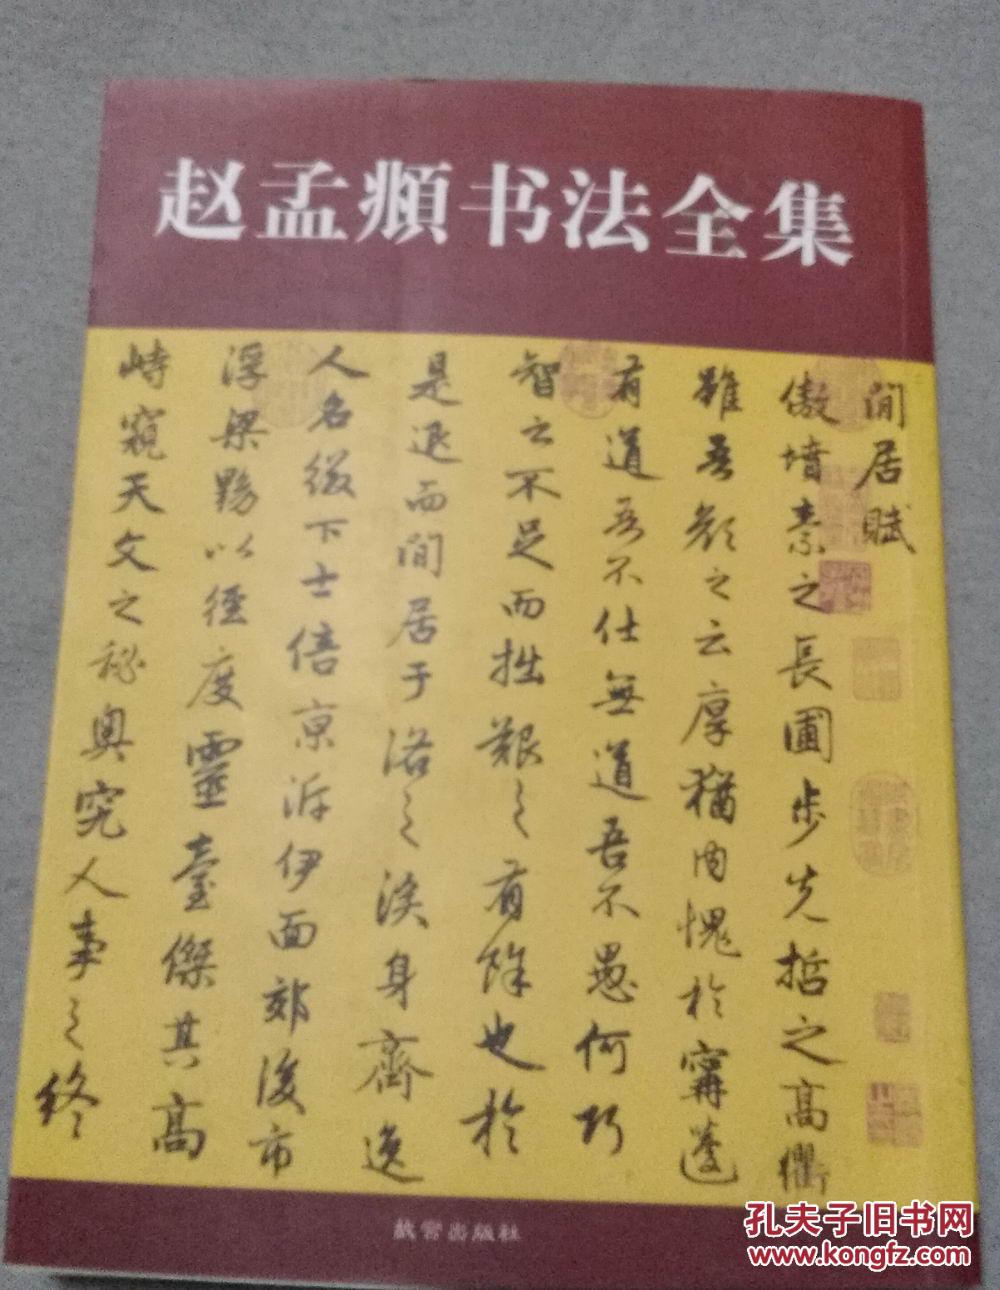 赵孟頫书法全集
閒居賦
傲墳素之長圃步先哲之高衢
雖吾顏之云厚猶內愧於甯蘧
有道吾不仕無道吾不愚何巧
智之不足而拙艱之有餘也於
是退而閒居于洛之涘身齊逸
人名綴下士倍京泝伊面郊後市
浮梁黝以徑度靈臺傑其高
峙窺天文之秘奧究人事之終
故宫出版社
孔夫子旧书网
www.kongfz.com